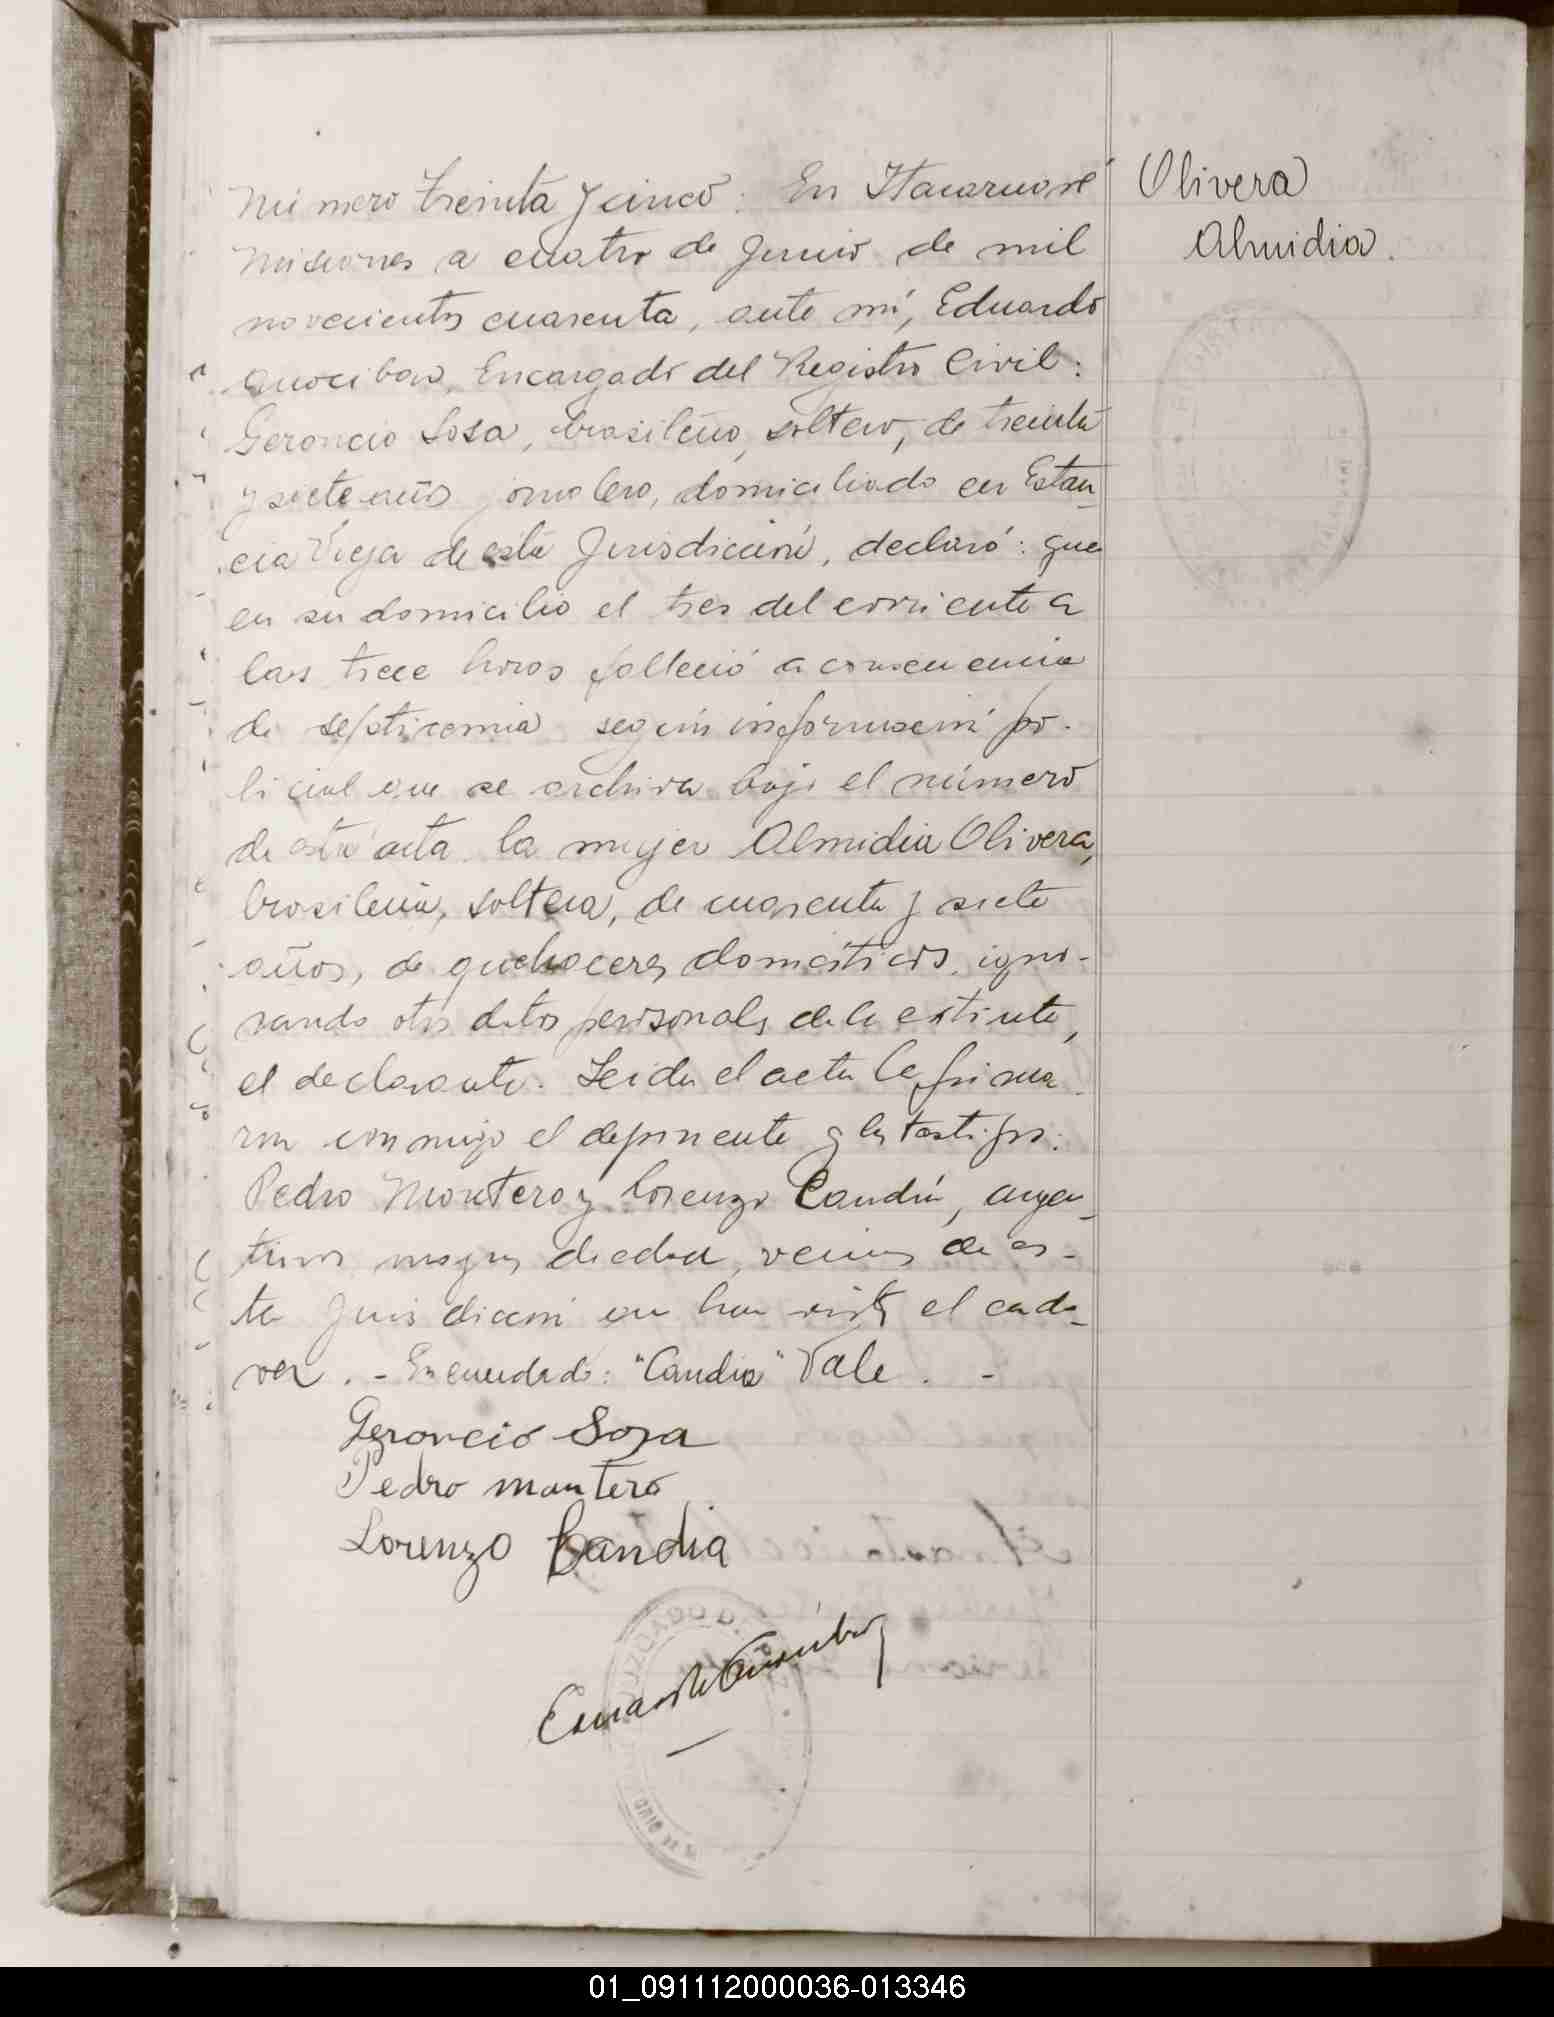 Número treinta y cinco: En Itacaruaré
Misiones a cuatro de Junio de mil
novecientos cuarenta, ante mí, Eduardo
Encargado del Registro Civil:
Geroncio Sosa, brasileño, soltero, de treinta
y siete años jornalero, domiciliado en Estan-
cia Vieja de esta Jurisdicción, declaró: que
en su domicilio el tres del corriente a
las trece horas falleció a consecuencia
de septicemia según información po-
licial que se archiva bajo el número
de esta acta la mujer Almidia Olivera,
brasileña, soltera, de cuarenta y siete
años, de quehaceres domésticos, igno-
rando otros datos personales de la extinta,
el declarante. Leida el acta la firma-
ron conmigo el deponente y los testigos:
Pedro Montero y Lorenzo Candia, argen-
tinos mayores de edad, vecinos de es-
ta Jurisdicción que han visto el cada-
ver. - Enmendado: "Candia" Vale. -
Geroncio Sosa
Pedro Montero
Lorenzo Candia
Olivera
Almidia.
01_091112000036-013346